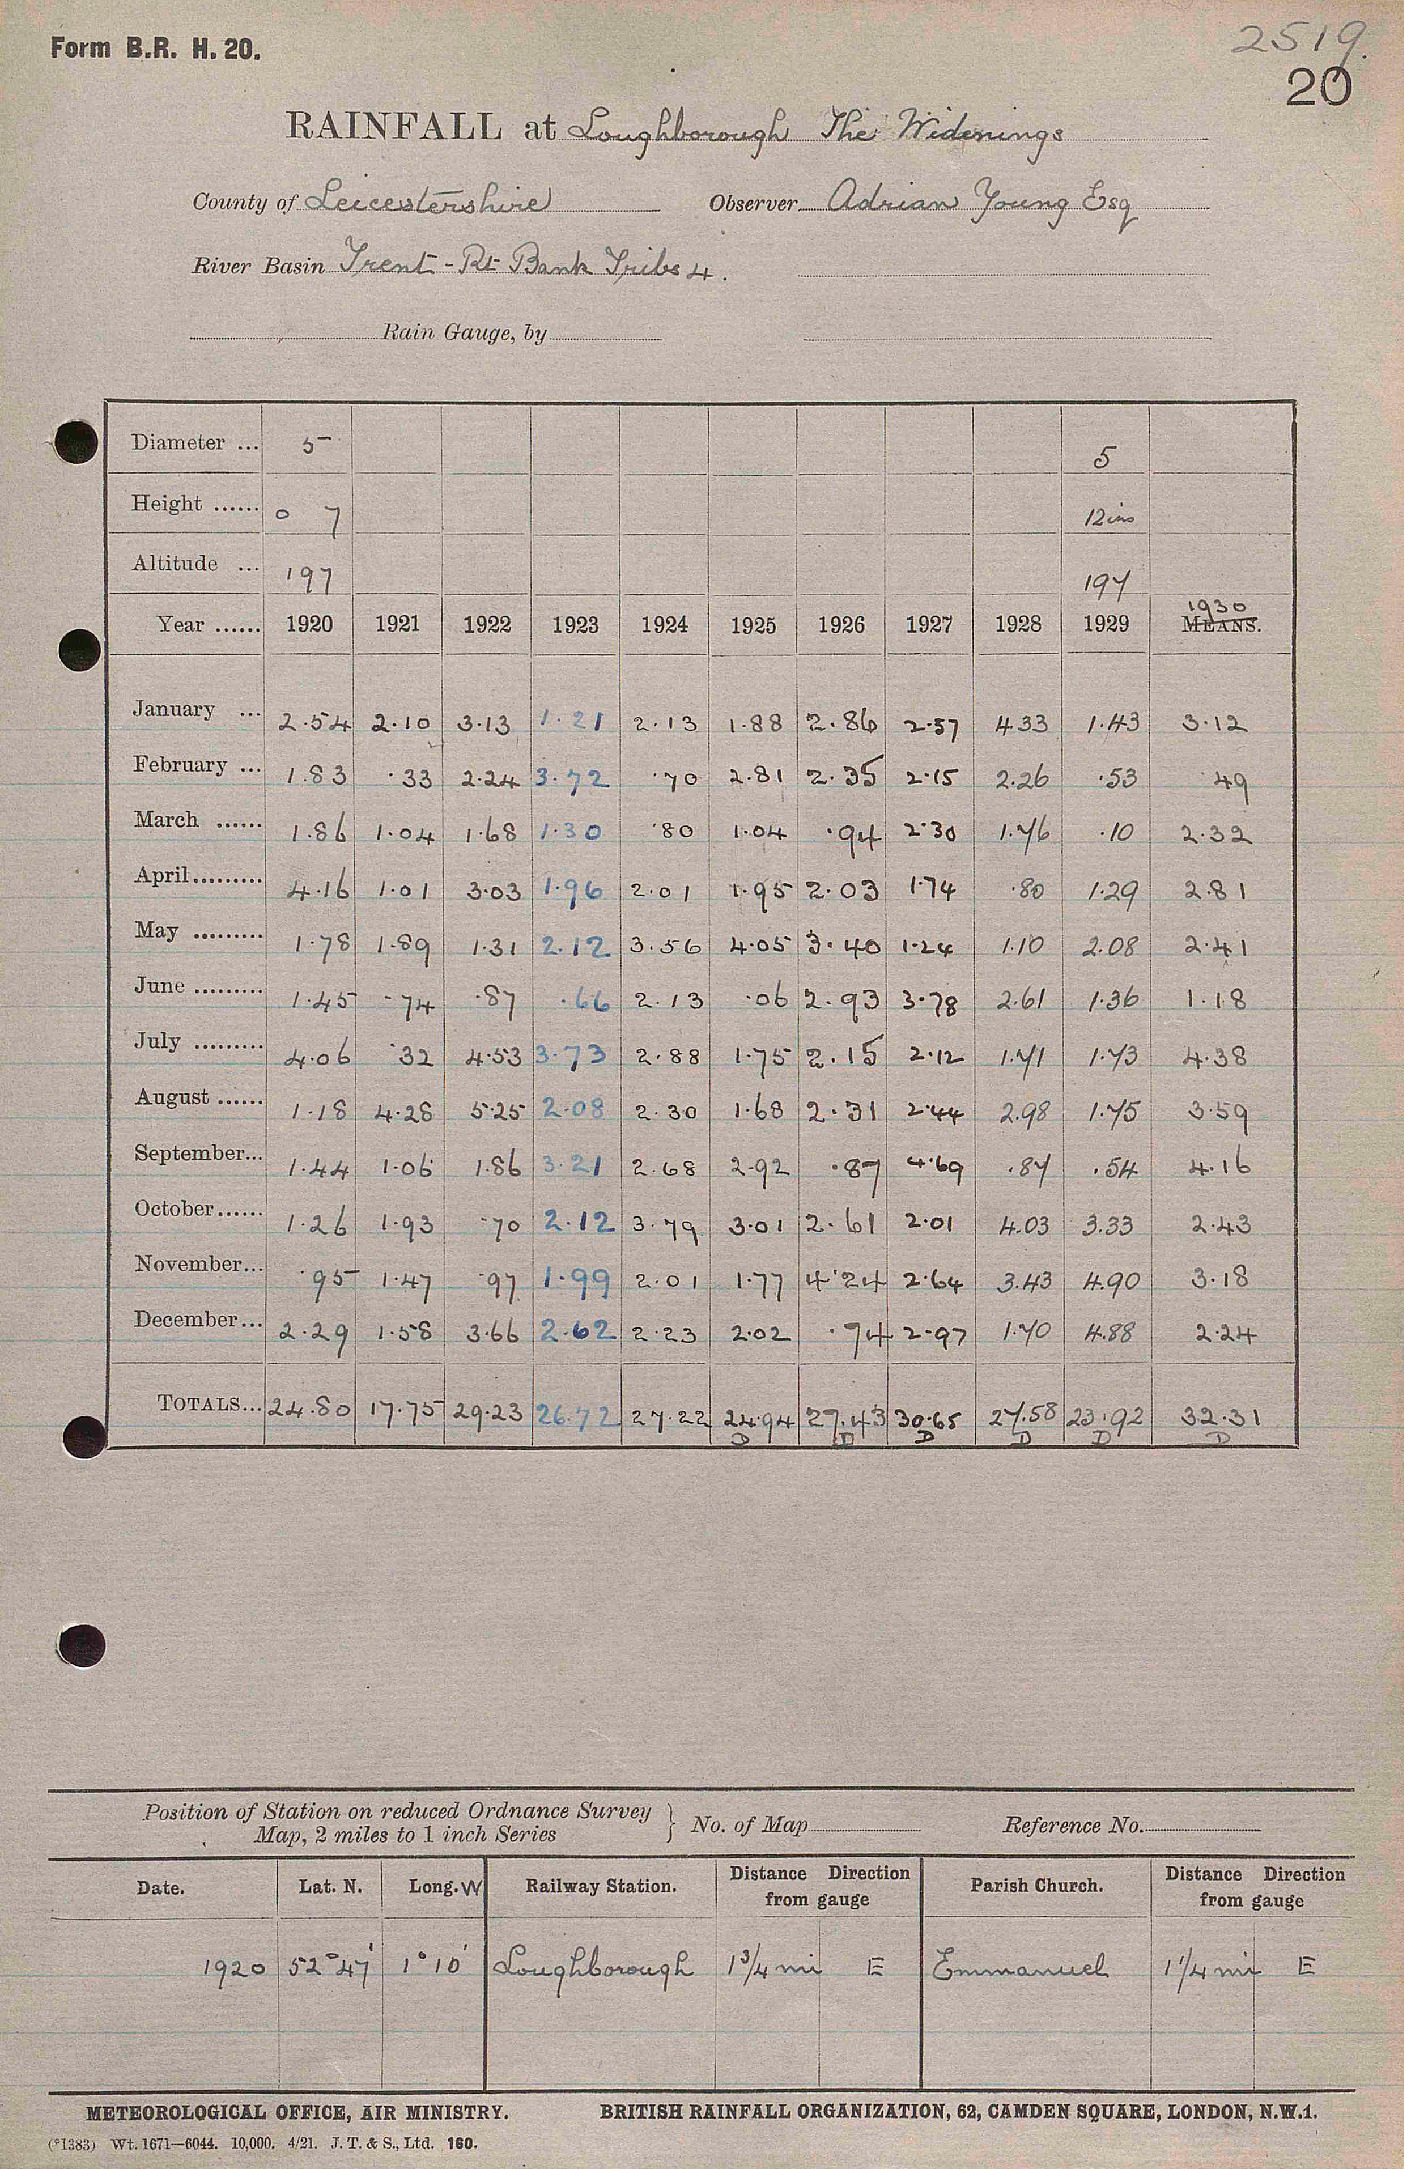 Form B.R. H. 20.
2519.
20
RAINFALL at Loughborough The Widenings
County of Leicestershire Observer Adrian Young Esq
River Basin Trent - Rt Bank Tribs 4.
Rain Gauge, by
Diameter ... 5 5
Height ...... 0 7 12ins
Altitude ... 197 197
1930
Year ...... 1920 1921 1922 1923 1924 1925 1926 1927 1928 1929 MEANS.
January ... 2.54 2.10 3.13 1.21 2.13 1.88 2.86 2.57 4.33 1.43 3.12
February ... 1.83 .33 2.24 3.72 .70 2.81 2.35 2.15 2.26 .53 .49
March ...... 1.86 1.04 1.68 1.30 .80 1.04 .94 2.30 1.76 .10 2.32
April......... 4.16 1.01 3.03 1.96 2.01 1.95 2.03 1.74 .80 1.29 2.81
May ......... 1.78 1.89 1.31 2.12 3.56 4.05 3.40 1.24 1.10 2.08 2.41
June ......... 1.45 .74 .87 .66 2.13 .06 2.93 3.78 2.61 1.36 1.18
July ......... 4.06 .32 4.53 3.73 2.88 1.75 2.15 2.12 1.71 1.73 4.38
August ...... 1.18 4.28 5.25 2.08 2.30 1.68 2.31 2.44 2.98 1.75 3.59
September... 1.44 1.06 1.86 3.21 2.68 2.92 .87 4.69 .87 .54 4.16
October...... 1.26 1.93 .70 2.12 3.79 3.01 2.61 2.01 4.03 3.33 2.43
November... .95 1.47 .97 1.99 2.01 1.77 4.24 2.64 3.43 4.90 3.18
December... 2.29 1.58 3.66 2.62 2.23 2.02 .74 2.97 1.70 4.88 2.24
TOTALS... 24.80 17.75 29.23 26.72 27.22 24.94 27.43 30.65 27.58 23.92 32.31
D D D D D D
Position of Station on reduced Ordnance Survey
Map, 2 miles to 1 inch Series } No. of Map Reference No.
Date. Lat. N. Long. W Railway Station. Distance Direction from gauge Parish Church. Distance Direction from gauge
1920 52°47' 1°10' Loughborough 1 3/4 mi E Emmanuel 1 1/4 mi E
METEOROLOGICAL OFFICE, AIR MINISTRY. BRITISH RAINFALL ORGANIZATION, 62, CAMDEN SQUARE, LONDON, N.W.1.
(*1383) Wt. 1671—6044. 10,000. 4/21. J. T. & S., Ltd. 160.